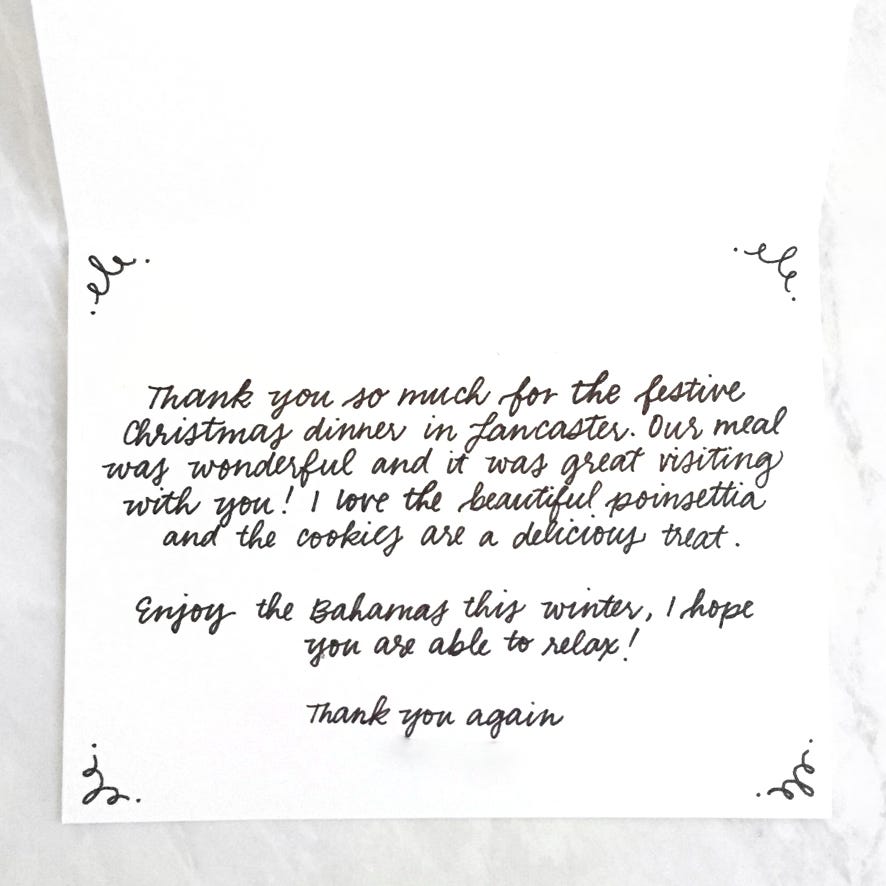 Thank you so much for the festive
Christmas dinner in Lancaster. Our meal
was wonderful and it was great visiting
with you! I love the beautiful poinsettia
and the cookies are a delicious treat.
Enjoy the Bahamas this winter, I hope
you are able to relax!
Thank you again